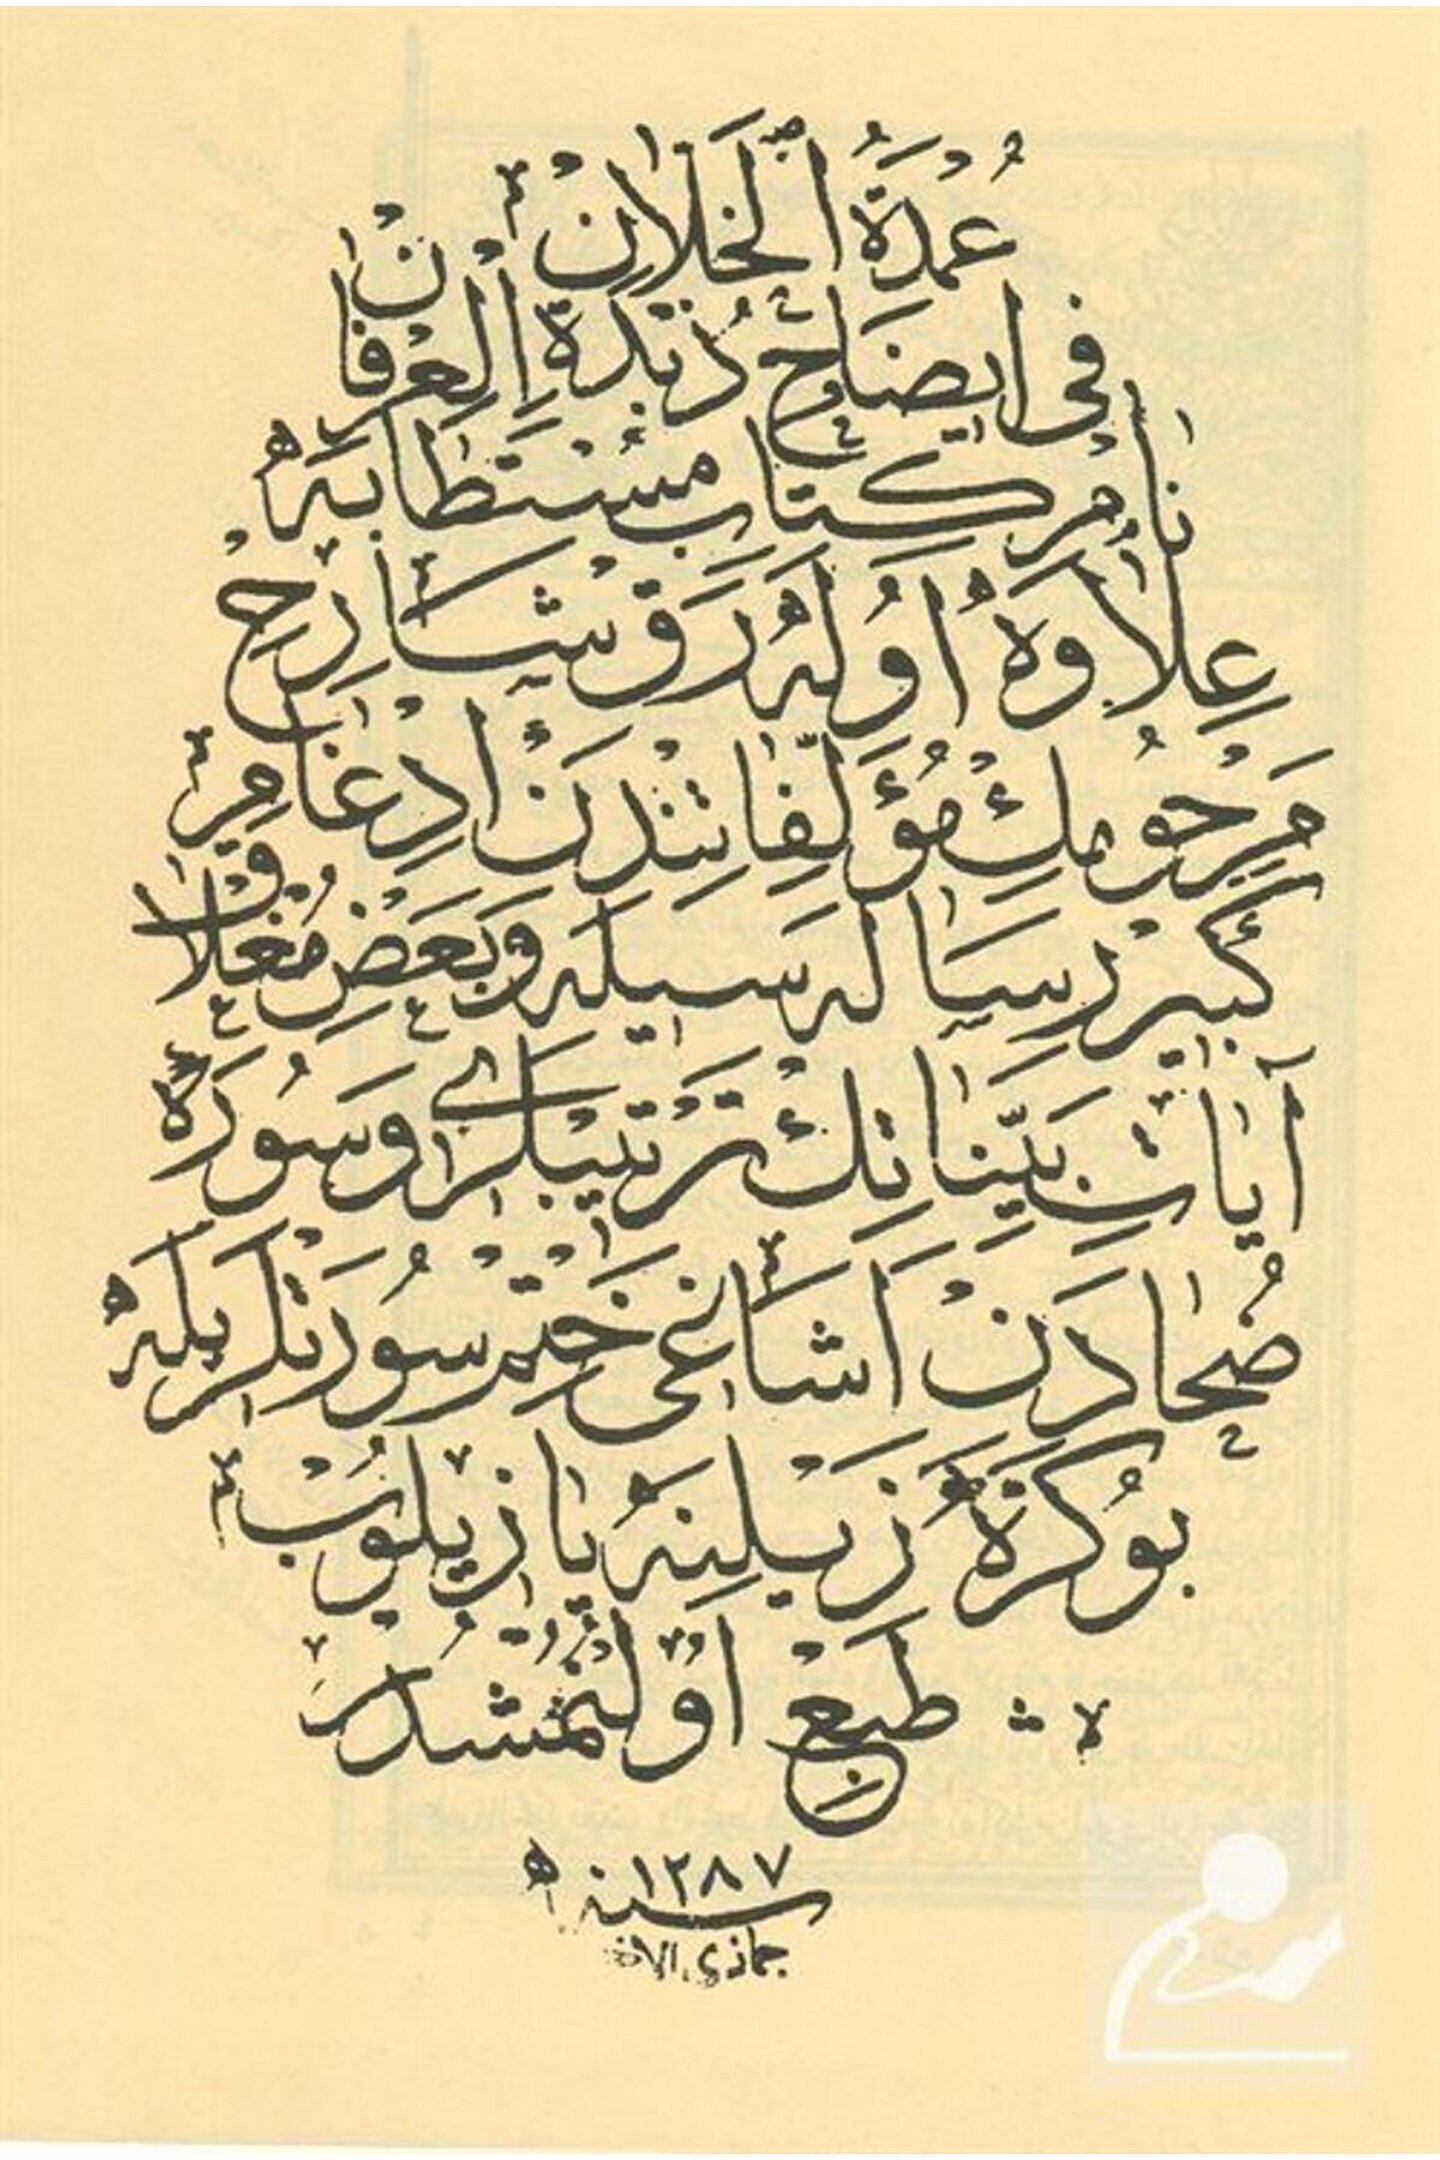 عُمْدَةُ الْخَلَّانْ
فى ايضَاحِ زُبْدَةِ الْعِرْفَانْ
نَامْ كِتَابِ مُسْتَطَابَه
عِلَاوَه اُولَه رَقْ شَارِحْ
مَرْحُومِكْ مُؤَلَّفَاتِنْدَنْ ادْغَامِ
كَبِيرْ رِسَالَه سيله وَبَعْضِ مُغْلَقْ
آيَاتِ بَيِّنَاتِكْ تَرْتِيبْلَرِى وَسُورَهٔ
ضُحَادَنْ اَشَاغى خَتِمْ سُورَتْلَرِيلَه
بُو كَرَّه ذَيْلِنَه يَازِيلُوبْ
طَبَعْ اُولُنْمُشْدُرْ
سنه ١٢٨٧
جماذى الاخر